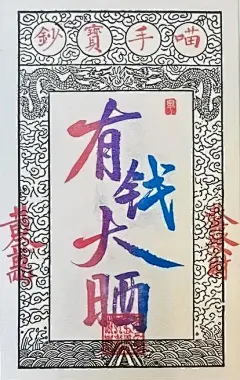 喵手寶鈔
有钱大晒